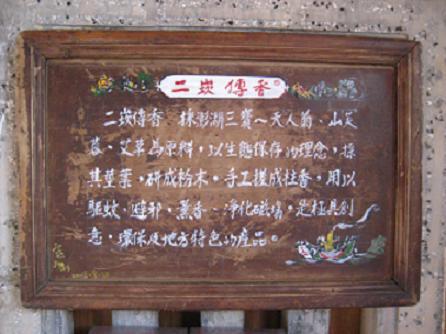 二崁傳香
二崁傳香 採澎湖三寶~天人菊、山芙
蓉、艾草為原料，以生態保存的理念，採
其莖葉，研成粉末，手工搓成柱香，用以
驅蚊、避邪、薰香~淨化磁場，是極具創
意、環保及地方特色的產品。